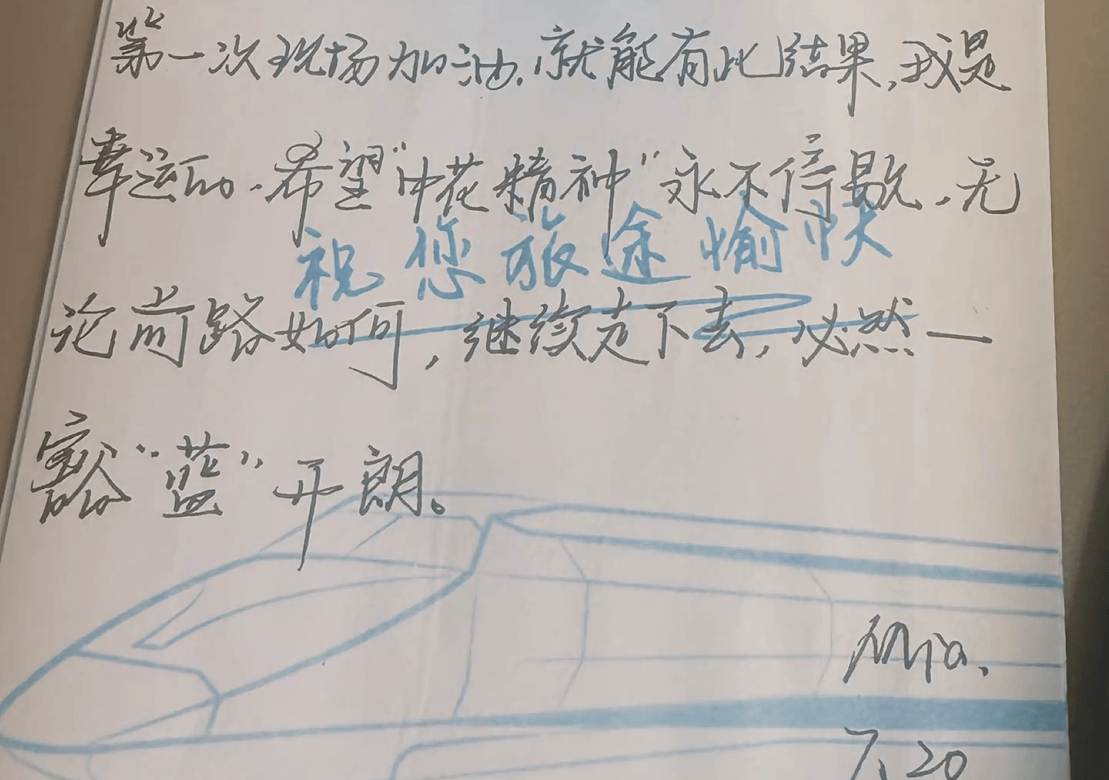 第一次现场加油,就能有此结果,我是
幸运的.希望“中花精神”永不停歇,无
祝您旅途愉快
论前路如何,继续走下去,必然一
豁“蓝”开朗。
Mia.
7.20